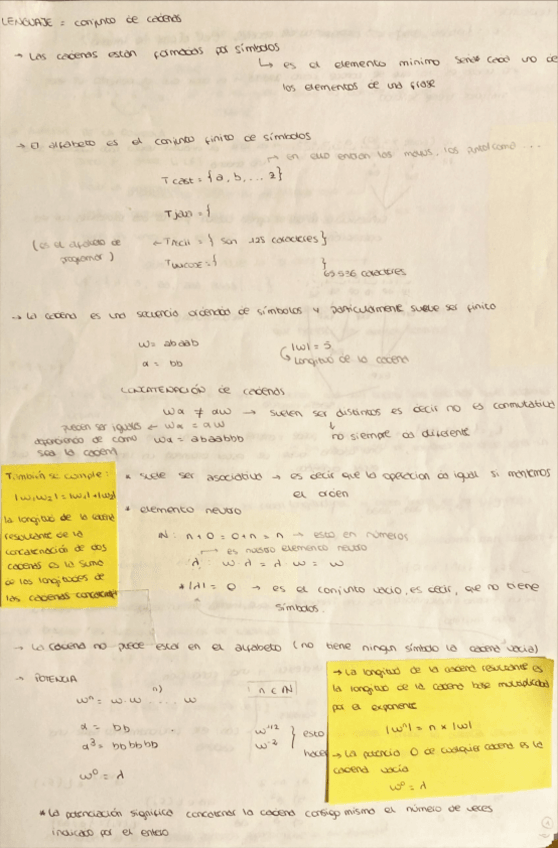 LENGUAJE = conjunto de cadenas
→ Las cadenas están formadas por símbolos
↳ es el elemento mínimo cada uno de
los elementos de una frase
→ El alfabeto es el conjunto finito de símbolos
→ en esto entran los mayus, los ...
T cast = {a, b, ... z}
T = {
(es el alfabeto de
programar)
← T ascii = { son 128 caracteres}
T unicode = { }
65536 caracteres
→ La cadena es una secuencia ordenada de símbolos y particularmente suele ser finito
w = abaab
|w| = 5
a = bb
↳ longitud de la cadena
CONCATENACIÓN de cadenas
wa ≠ aw → suelen ser distintos es decir no es conmutativa
pueden ser iguales ← wa = aw
↓
dependiendo de cómo
sea la cadena
wa = abaabbb
no siempre es diferente
También se cumple:
|w₁w₂| = |w₁| + |w₂|
la longitud de la cadena
resultante de la
concatenación de dos
cadenas es la suma
de las longitudes de
las cadenas
* suele ser asociativa → es decir que la operacion es igual si mantemos
el orden
* elemento neutro
ℕ: n + 0 = 0 + n = n → esto en números
→ es nuestro elemento neutro
λ: w λ = λ w = w
* |λ| = 0 → es el conjunto vacio, es decir, que no tiene
símbolos.
→ La cadena no puede estar en el alfabeto (no tiene ningun símbolo la cadena vacía)
→ POTENCIA
wⁿ = w · w ... w
n)
n ∈ ℕ
a = bb
a³ = bbbbbb
w⁰ = λ
w^1/2
w^-2
} esto
hacer
→ La longitud de la cadena resultante es
la longitud de la cadena base multiplicada
por el exponente
|wⁿ| = n × |w|
→ La potencia 0 de cualquier cadena es la
cadena vacía
w⁰ = λ
* La potenciación significa concatenar la cadena consigo misma el número de veces
indicado por el entero